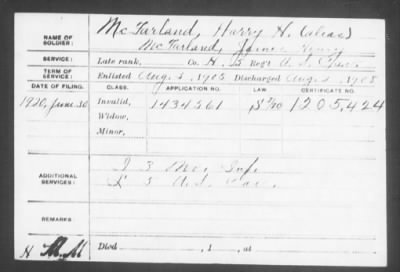 McFarland, Harry H. (alias)
NAME OF SOLDIER:
McFarland, James Henry
SERVICE:
Late rank, Co. H, 15 Reg't U. S. Cav.
TERM OF SERVICE:
Enlisted Aug. 3, 1905 Discharged Aug. 2, 1908
DATE OF FILING. CLASS. APPLICATION NO. LAW. CERTIFICATE NO.
1920, June 30 Invalid, 1434561 1205,424
Widow,
Minor,
ADDITIONAL SERVICES:
3 Mo. Inf.
U.S. Cav.
REMARKS
Died , 1 , at